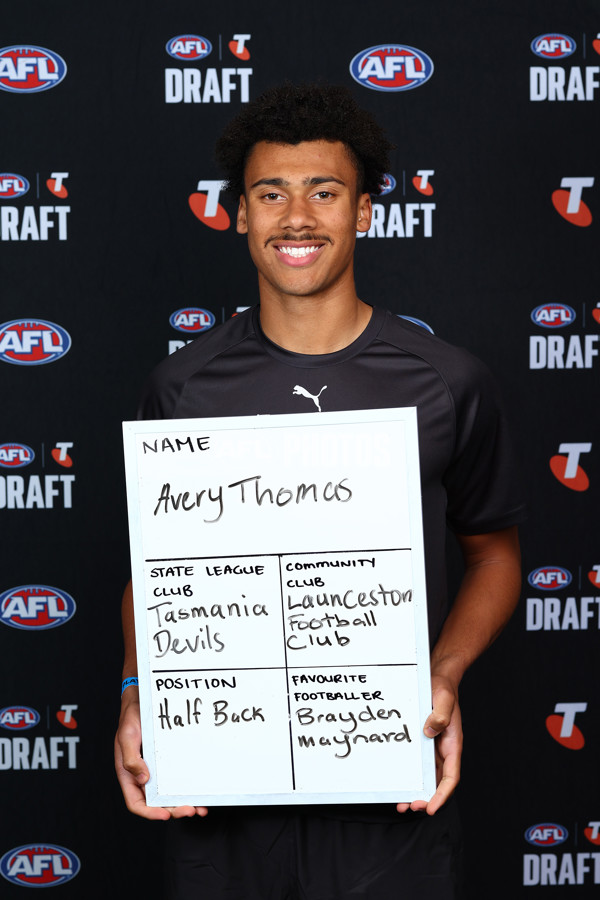 AFL
AFL T
DRAFT
AFL
AFL T
DRAFT
AFL T
DRAFT
T
AFL T
DRAFT
T
AFL
AFL
AFL T
DRAFT
AFL T
DRAFT
T
NAME
Avery Thomas
STATE LEAGUE
CLUB
Tasmania
Devils
COMMUNITY
CLUB
Launceston
Football
Club
POSITION
Half Back
FAVOURITE
FOOTBALLER
Brayden
Maynard
AFL
AFL T
DRAFT
AFL T
DRAFT
T
AFL
AFL T
DRAFT